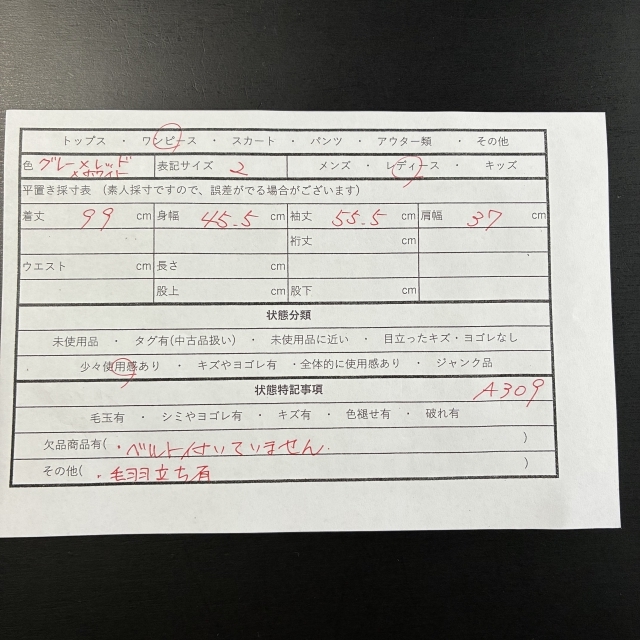 トップス ・ ワンピース ・ スカート ・ パンツ ・ アウター類 ・ その他
色 グレー×レッド×ホワイト 表記サイズ 2 メンズ ・ レディース ・ キッズ
平置き採寸表 (素人採寸ですので、誤差がでる場合がございます)
着丈 99 cm 身幅 45.5 cm 袖丈 55.5 cm 肩幅 37 cm
裄丈 cm
ウエスト cm 長さ cm
股上 cm 股下 cm
状態分類
未使用品 ・ タグ有(中古品扱い) ・ 未使用品に近い ・ 目立ったキズ・ヨゴレなし
少々使用感あり ・ キズやヨゴレ有 ・全体的に使用感あり ・ ジャンク品
状態特記事項 A309
毛玉有 ・ シミやヨゴレ有 ・ キズ有 ・ 色褪せ有 ・ 破れ有
欠品商品有( ・ベルト付いていません. )
その他( ・毛羽立ち有 )